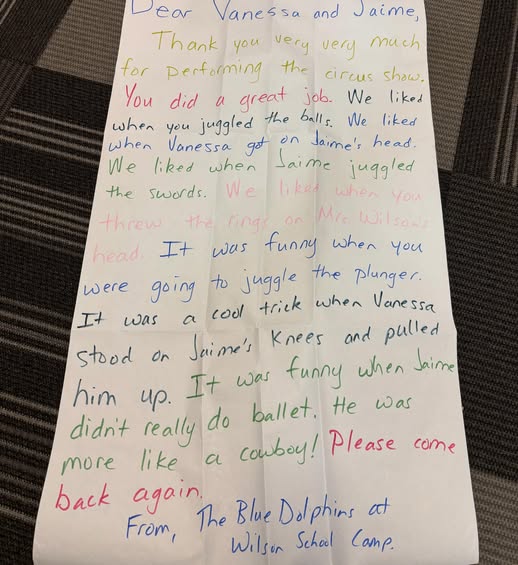 Dear Vanessa and Jaime,
Thank you very very much
for performing the circus show.
You did a great job. We liked
when you juggled the balls. We liked
when Vanessa got on Jaime's head.
We liked when Jaime juggled
the swords. We liked when you
threw the rings on Mrs Wilson's
head. It was funny when you
were going to juggle the plunger.
It was a cool trick when Vanessa
stood on Jaime's knees and pulled
him up. It was funny when Jaime
didn't really do ballet. He was
more like a cowboy! Please come
back again.
From, The Blue Dolphins at
Wilson School Camp.